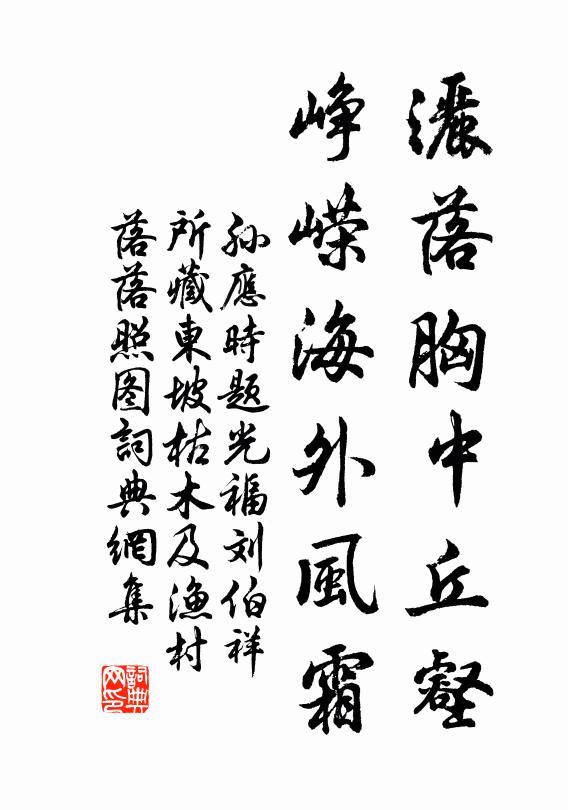 灑落胸中丘壑
峥嵘海外風霜
孙應時题光福刘伯祥
所藏東坡枯木及漁村
落落照图詞典網集
詞典
网印